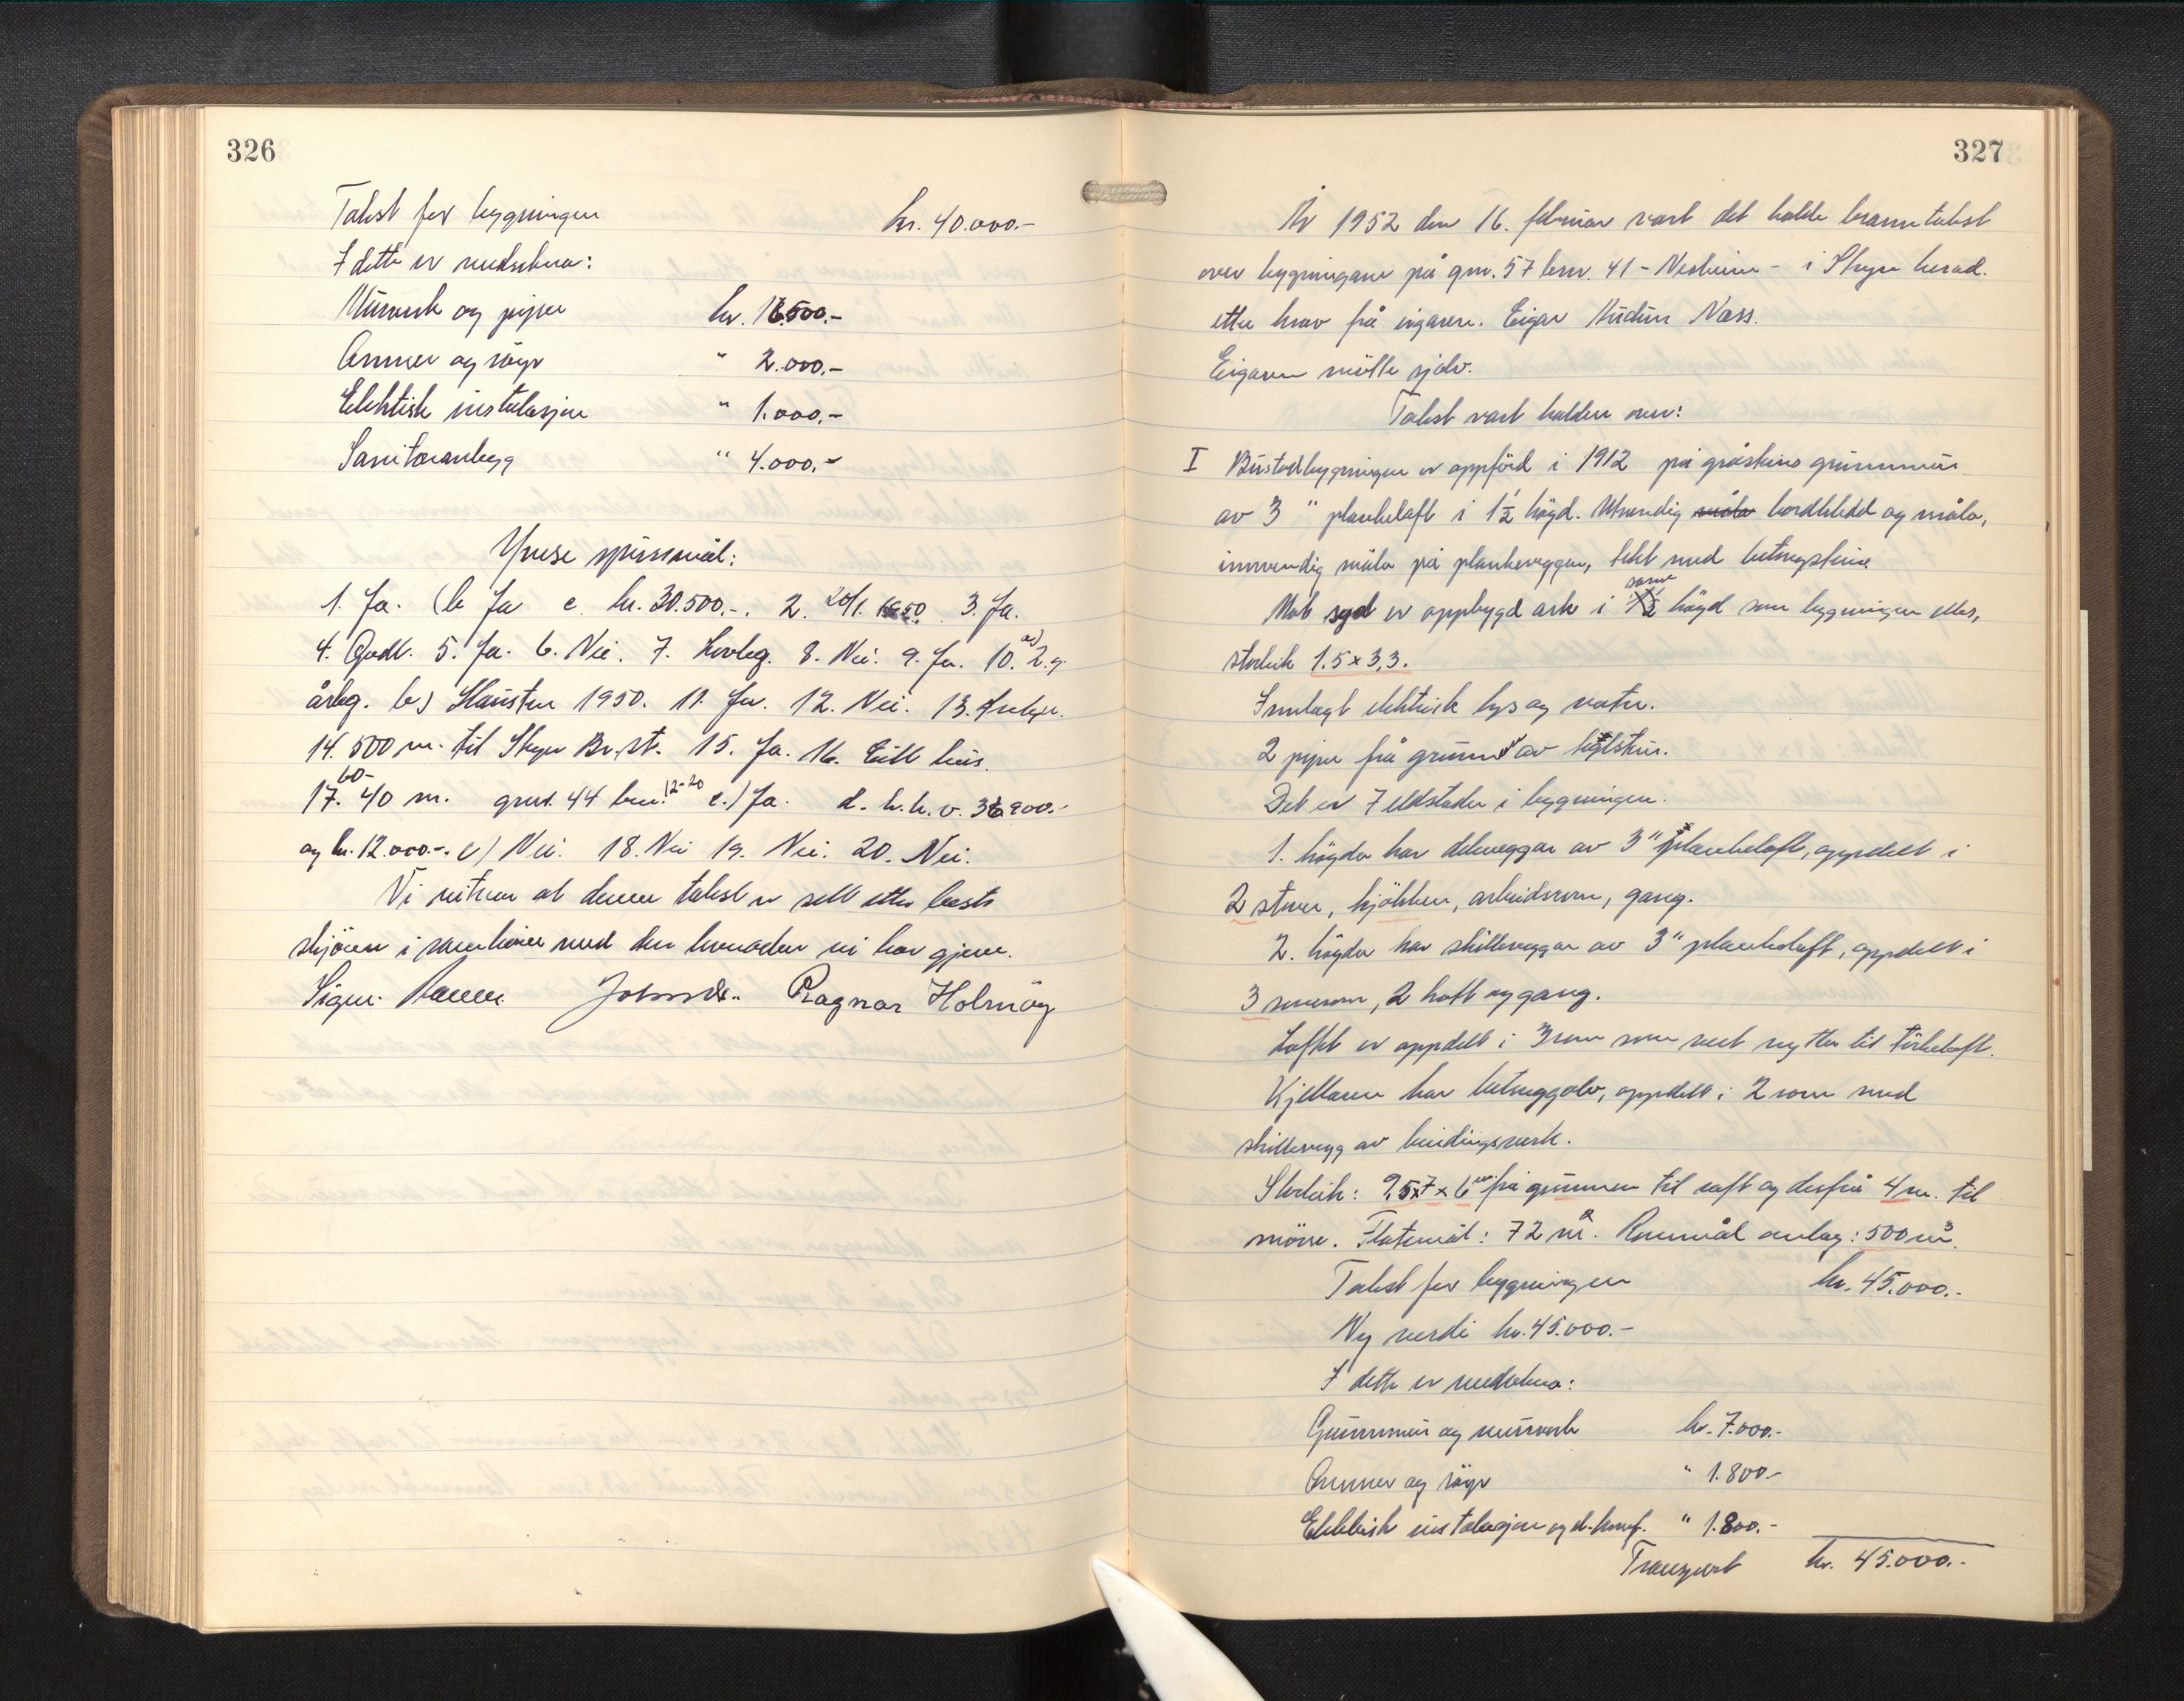 326
Takst for bygningen kr. 40.000.-
I dette er medrekna:
Murverk og piper kr. 16.500.-
Omner og røyr " 2.000.-
Elektrisk installasjon " 1.000.-
Sanitæranlegg " 4.000.-
Ymse spursmål:
1. Ja. (b Ja c. kr. 30.500.-. 2. 20/1. 1950. 3. Ja.
4. Godt. 5. Ja. 6. Nei. 7. Lovleg. 8. Nei. 9. Ja. 10. a) 2 g.
årleg. b) Hausten 1950. 11. Ja. 12. Nei. 13.
14. 500 m. til Stryn Br.st. 15. Ja. 16. Eitt hus.
17. 40 m. gnr. 44 bnr. 12-20 c.) Ja. d. h.h.v. 36900.-
og kr. 12.000.-. e) Nei. 18. Nei 19. Nei. 20. Nei.
Vi vitnar at denne takst er sett etter beste
skjönn i samhöve med den kunnskap vi har gjeve.
Ragnar Holmöy
327
År 1952 den 16. februar vart det halde branntakst
over bygningane på gnr. 57 bnr. 41 - Nesheim - i Stryn herad.
etter krav frå eigaren. Eigar Audun Nass.
Eigaren mötte sjølv.
Takst vart halden over:
I Bustadbygningen er oppförd i 1912 på gråsteins grunnmur
av 3" plankelaft i 1½ högd. Utvendig måla bordkledd og måla,
innvendig måla på plankeveggar, tekt med betongsteins
Mot syd er oppbygd ark i same högd som bygningen elles,
storleik 1.5 x 3,3.
Innlagt elektrisk lys og vatn.
2 piper frå grunn av teglstein.
Det er 7 eldstader i bygningen.
1. högda har deleveggar av 3" plankelaft, oppdelt i
2 stover, kjökken, arbeidsrom, gang.
2. högda har skilleveggar av 3" plankelaft, oppdelt i
3 soverom, 2 kott og gang.
Loftet er oppdelt i 3 rom som vert nytta til törkeloft.
Kjellaren har betonggolv, oppdelt i 2 rom med
skillevegg av bindingsverk.
Storleik: 9,5x7x6 m frå grunnen til raft og derfrå 4 m. til
möne. Flatemål: 72 m². Rommål omlag: 500 m³.
Takst for bygningen kr. 45.000.-
Ny verdi kr. 45.000.-
I dette er medrekna:
Grunnmur og murverk kr. 7.000.-
Omner og röyr " 1.800-
Elektrisk installasjon og el. komf. " 1.800.-
Transport kr. 45.000.-